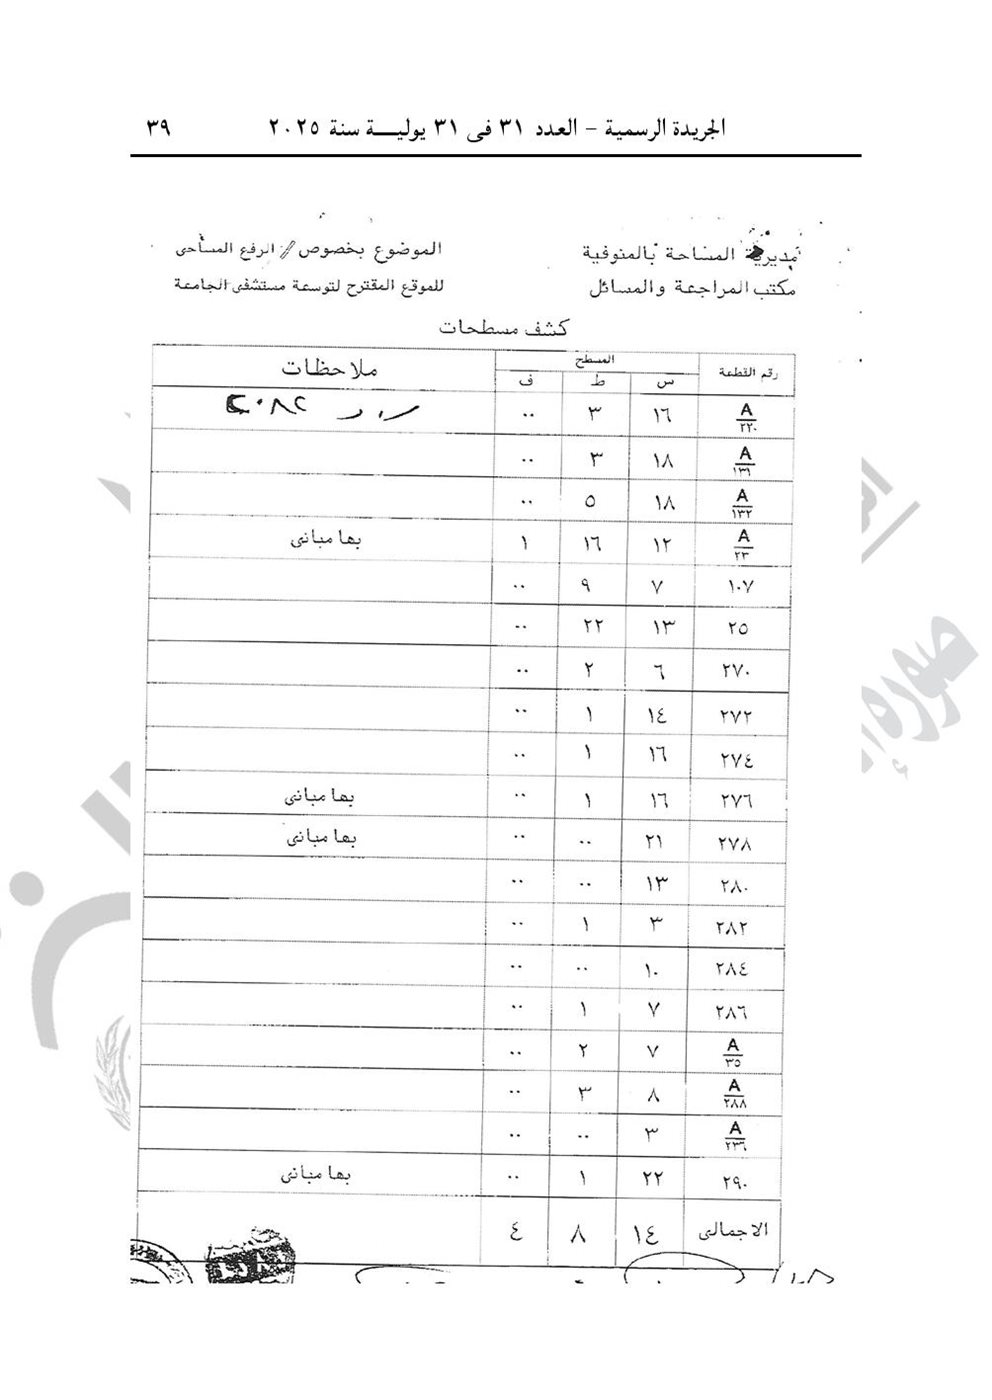 الجريدة الرسمية – العدد ٣١ فى ٣١ يوليـــة سنة ٢٠٢٥ ٣٩
مديرية المساحة بالمنوفية
مكتب المراجعة والمسائل
الموضوع بخصوص // الرفع المساحى
للموقع المقترح لتوسعة مستشفى الجامعة
كشف مسطحات
رقم القطعة المسطح ملاحظات
س ط ف
A/٢٢٠ ١٦ ٣ ٠٠
A/١٣٦ ١٨ ٣ ٠٠
A/١٣٢ ١٨ ٥ ٠٠
A/٢٣ ١٢ ١٦ ١ بها مبانى
١٠٧ ٧ ٩ ٠٠
٢٥ ١٣ ٢٢ ٠٠
٢٧٠ ٦ ٢ ٠٠
٢٧٢ ١٤ ١ ٠٠
٢٧٤ ١٦ ١ ٠٠
٢٧٦ ١٦ ١ ٠٠ بها مبانى
٢٧٨ ٢١ ٠٠ ٠٠ بها مبانى
٢٨٠ ١٣ ٠٠ ٠٠
٢٨٢ ٣ ١ ٠٠
٢٨٤ ١٠ ٠٠ ٠٠
٢٨٦ ٧ ١ ٠٠
A/٣٥ ٧ ٢ ٠٠
A/٢٨٨ ٨ ٣ ٠٠
A/٢٣٦ ٣ ٠٠ ٠٠
٢٩٠ ٢٢ ١ ٠٠ بها مبانى
الاجمالى ١٤ ٨ ٤